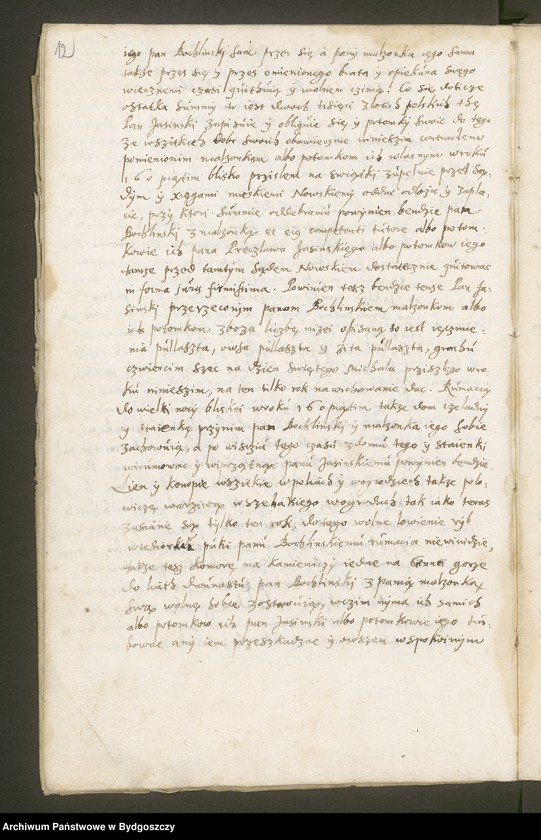 12
iego pan Bochlinski sam przes się a pany malzonka iego sama
także przes się y przes omienionego brata y opiekuna swego
wiecznemi czasi quituią y wolnem czinią. Co się doticze
ostatka summy to iest dwoch tisięcy zlotich polskich +Sę
Pan Jasinski zapisuie y obliguie się y potomky swoie do tego
ze wszitkich dobr swoich obowięzuie ninieszim contractem
pomienionim malzonkom albo potomkom ich wlasnym w roku
160 piątim blisko przislem na swiątki zupelnie przed Sę-
dym y xięgami mieskiemi Nowskiemy oddac odlożic y zapla-
cic, przy ktori summie oddebraniu powynien bendzie pan
Bochlinski z malzonką et eię competenti tutore albo potom-
kowie ich pana Preczlawa Jasinskiego albo potomkow iego
tamze przed tamtym Sądem Nowskiem dostatecznie quitowac
in forma juris firmissima. Powinien tesz bendzie tenze Pan Ja-
sinski przerzeconim panom Bochlinskiem malzonkom albo
ich potomkom zboza liczbę nizei opisaną to iest ięczmie-
nia pullaszta, owsa pullaszta y żita pullaszta, grochu
czwiercim szac na dzien swiętego Michala przislego wro-
ku ninieszim, na ten tilko rok na wichowanie dac. Rumacią
do wielki nocy bliskoi w roku 160 piątim także dom czeladny
y staienkę przynim pan Bochlinski y malzonka iego sobie
zachowuią, a po wisciu tego czasu z domu tego y staienki
wirumowac y wiprzątnąc panu Jasinskiemu powynien bendzie.
Lien y konopie wszitkie w poliach y wogrodziech także polo-
wicze warziwa wszeliakiego wogrodach tak iako teraz
zasiane są tilko ten rok, do tego wolne lowienie rib
w ieziorkach puki panu Bochlinskiemu rumacia niewinidzie,
także tesz komorę na kamieniczy iedne na gorze
do liath dwunastu pan Bochlinski z panią malzonką
swą wolną sobie zostawuią, w czim nyma ich samich
albo potomkow ich pan Jasinski albo potomkowie iego tur-
bowac any iem przeszkadzac y owszem w spokoinym
Archiwum Państwowe w Bydgoszczy